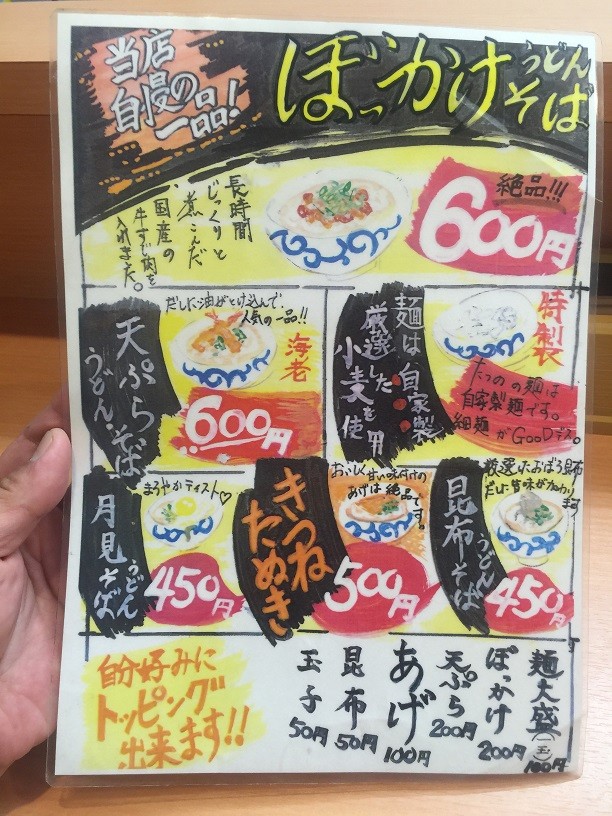 当店
自慢の
一品!
ぼっかけ
うどん
そば
長時間
じっくりと
煮こんだ
国産の
牛すじ肉を
入れました。
絶品!!!
600円
だしに油がとけ込んで、
人気の一品!!
天ぷら
うどん・そば
海老
600円
麺は自家製
厳選した
小麦を使用
特製
たつのの麺は
自家製麺です。
細麺がGooDデス。
まろやかテイスト♡
月見そば
うどん
450円
きつね
たぬき
おいしく甘い味付けの
あげは絶品です。
500円
厳選したおぼろ昆布
だしに旨味が加わり
ます
昆布そば
うどん
450円
自分好みに
トッピング
出来ます!!
麺大盛(一玉)
100円
ぼっかけ
200円
天ぷら
200円
あげ
100円
昆布
50円
玉子
50円